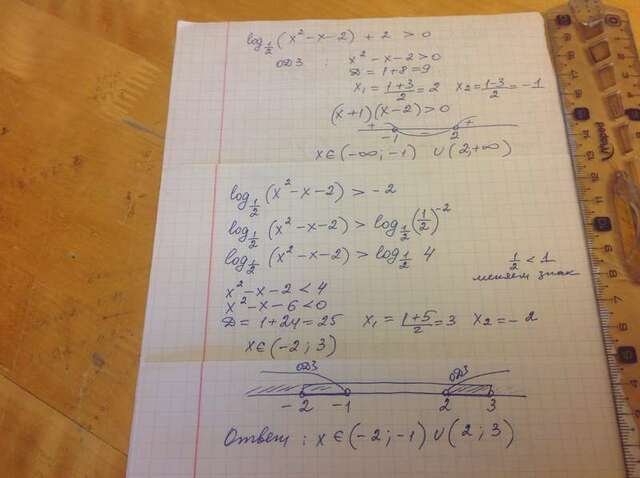 log_{1/2} (x² - x - 2) + 2 > 0
ОДЗ : x² - x - 2 > 0
D = 1 + 8 = 9
x₁ = (1+3)/2 = 2   x₂ = (1-3)/2 = -1
(x+1)(x-2) > 0
+ - +
-1 2
x ∈ (-∞; -1) ∪ (2; +∞)
log_{1/2} (x² - x - 2) > -2
log_{1/2} (x² - x - 2) > log_{1/2} (1/2)⁻²
log_{1/2} (x² - x - 2) > log_{1/2} 4
1/2 < 1
меняем знак
x² - x - 2 < 4
x² - x - 6 < 0
D = 1 + 24 = 25   x₁ = (1+5)/2 = 3   x₂ = -2
x ∈ (-2; 3)
ОДЗ ОДЗ
-2 -1 2 3
Ответ: x ∈ (-2; -1) ∪ (2; 3)